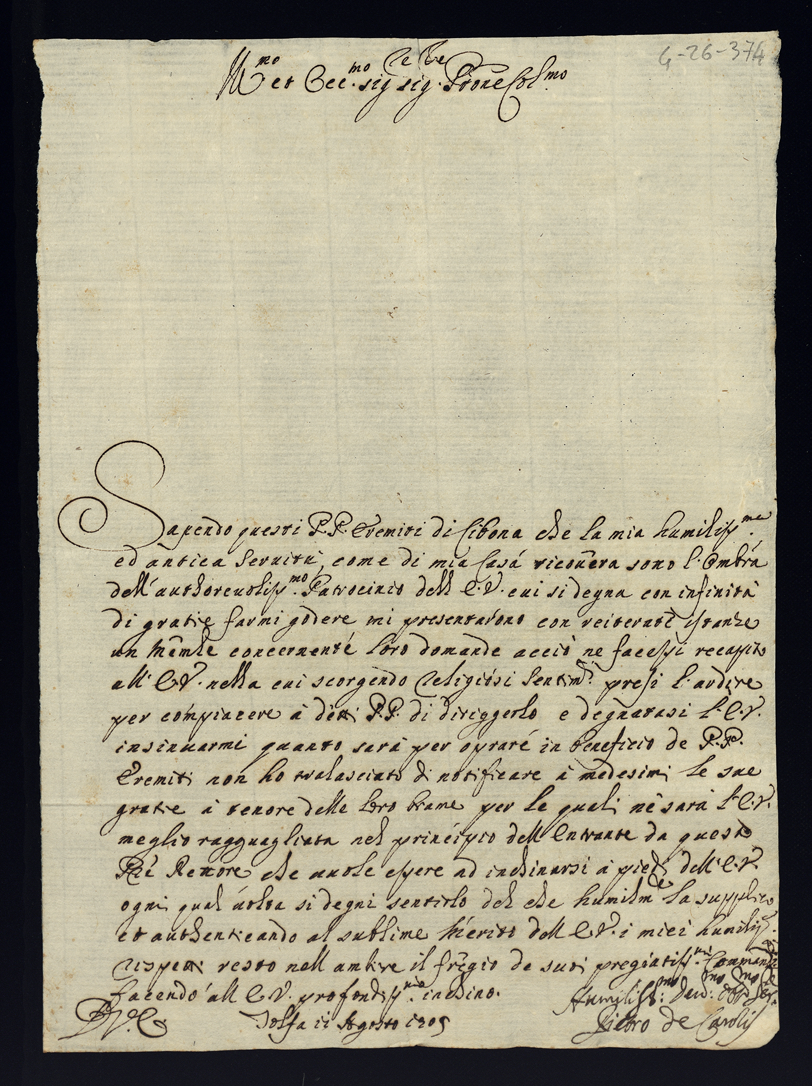 4-26-374
Ill.mo et Ecc.mo sig sig. Prone Col.mo
Sapendo questi P.P. Eremiti di Cibona che la mia humiliss.ma
ed antica servitù, come di mia Casa ricovera sono l'ombra
dell'authorevoliss.mo Patrocinio dell' E.V. cui si degna con infinità
di gratie farmi godere mi presentarono con reiterate istanze
un Mem.le concernente loro domande acciò ne facessi recapito
all' E.V. nella cui scorgendo religiosi sentim.ti presi l'ardire
per compiacere à detti P.P. di diriggerlo e degnatasi l'E.V.
insinuarmi quanto sarà per oprare in beneficio de P.P.
Eremiti non ho tralasciato di notificare à medesimi le sue
gratie à tenore delle loro brame per le quali ne sarà l'E.V.
meglio ragguagliata nel principio dell'entrante da questo
P. Rettore che vuole essere ad inchinarsi à piedi dell'E.V.
ogni qual volta si degni sentirlo del che humilm.te la supplico
et authenticando al sublime merito dell E.V. i miei humiliss.
rispetti resto nell ambire il fregio de suoi pregiatiss.mi Comandi
facendo all E.V. profondiss.mo inchino.
Tolfa 11 Agosto 1705
Humiliss.mo Dev.mo Obl.mo Ser.
Pietro de Carolis